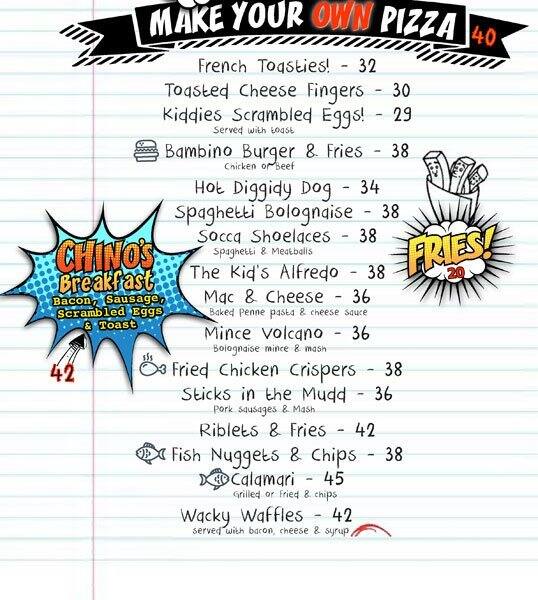 MAKE YOUR OWN PIZZA 40
French Toasties! - 32
Toasted Cheese Fingers - 30
Kiddies Scrambled Eggs! - 29
Served with toast
Bambino Burger & Fries - 38
Chicken or Beef
Hot Diggidy Dog - 34
Spaghetti Bolognaise - 38
Socca Shoelaces - 38
Spaghetti & Meatballs
The Kid's Alfredo - 38
Mac & Cheese - 36
Baked Penne pasta & cheese sauce
Mince Volcano - 36
Bolognaise mince & mash
Fried Chicken Crispers - 38
Sticks in the Mudd - 36
Pork sausages & Mash
Riblets & Fries - 42
Fish Nuggets & Chips - 38
Calamari - 45
Grilled or Fried & chips
Wacky Waffles - 42
served with bacon, cheese & syrup
CHINO'S
Breakfast
Bacon, Sausage,
Scrambled Eggs
& Toast
42
FRIES!
20